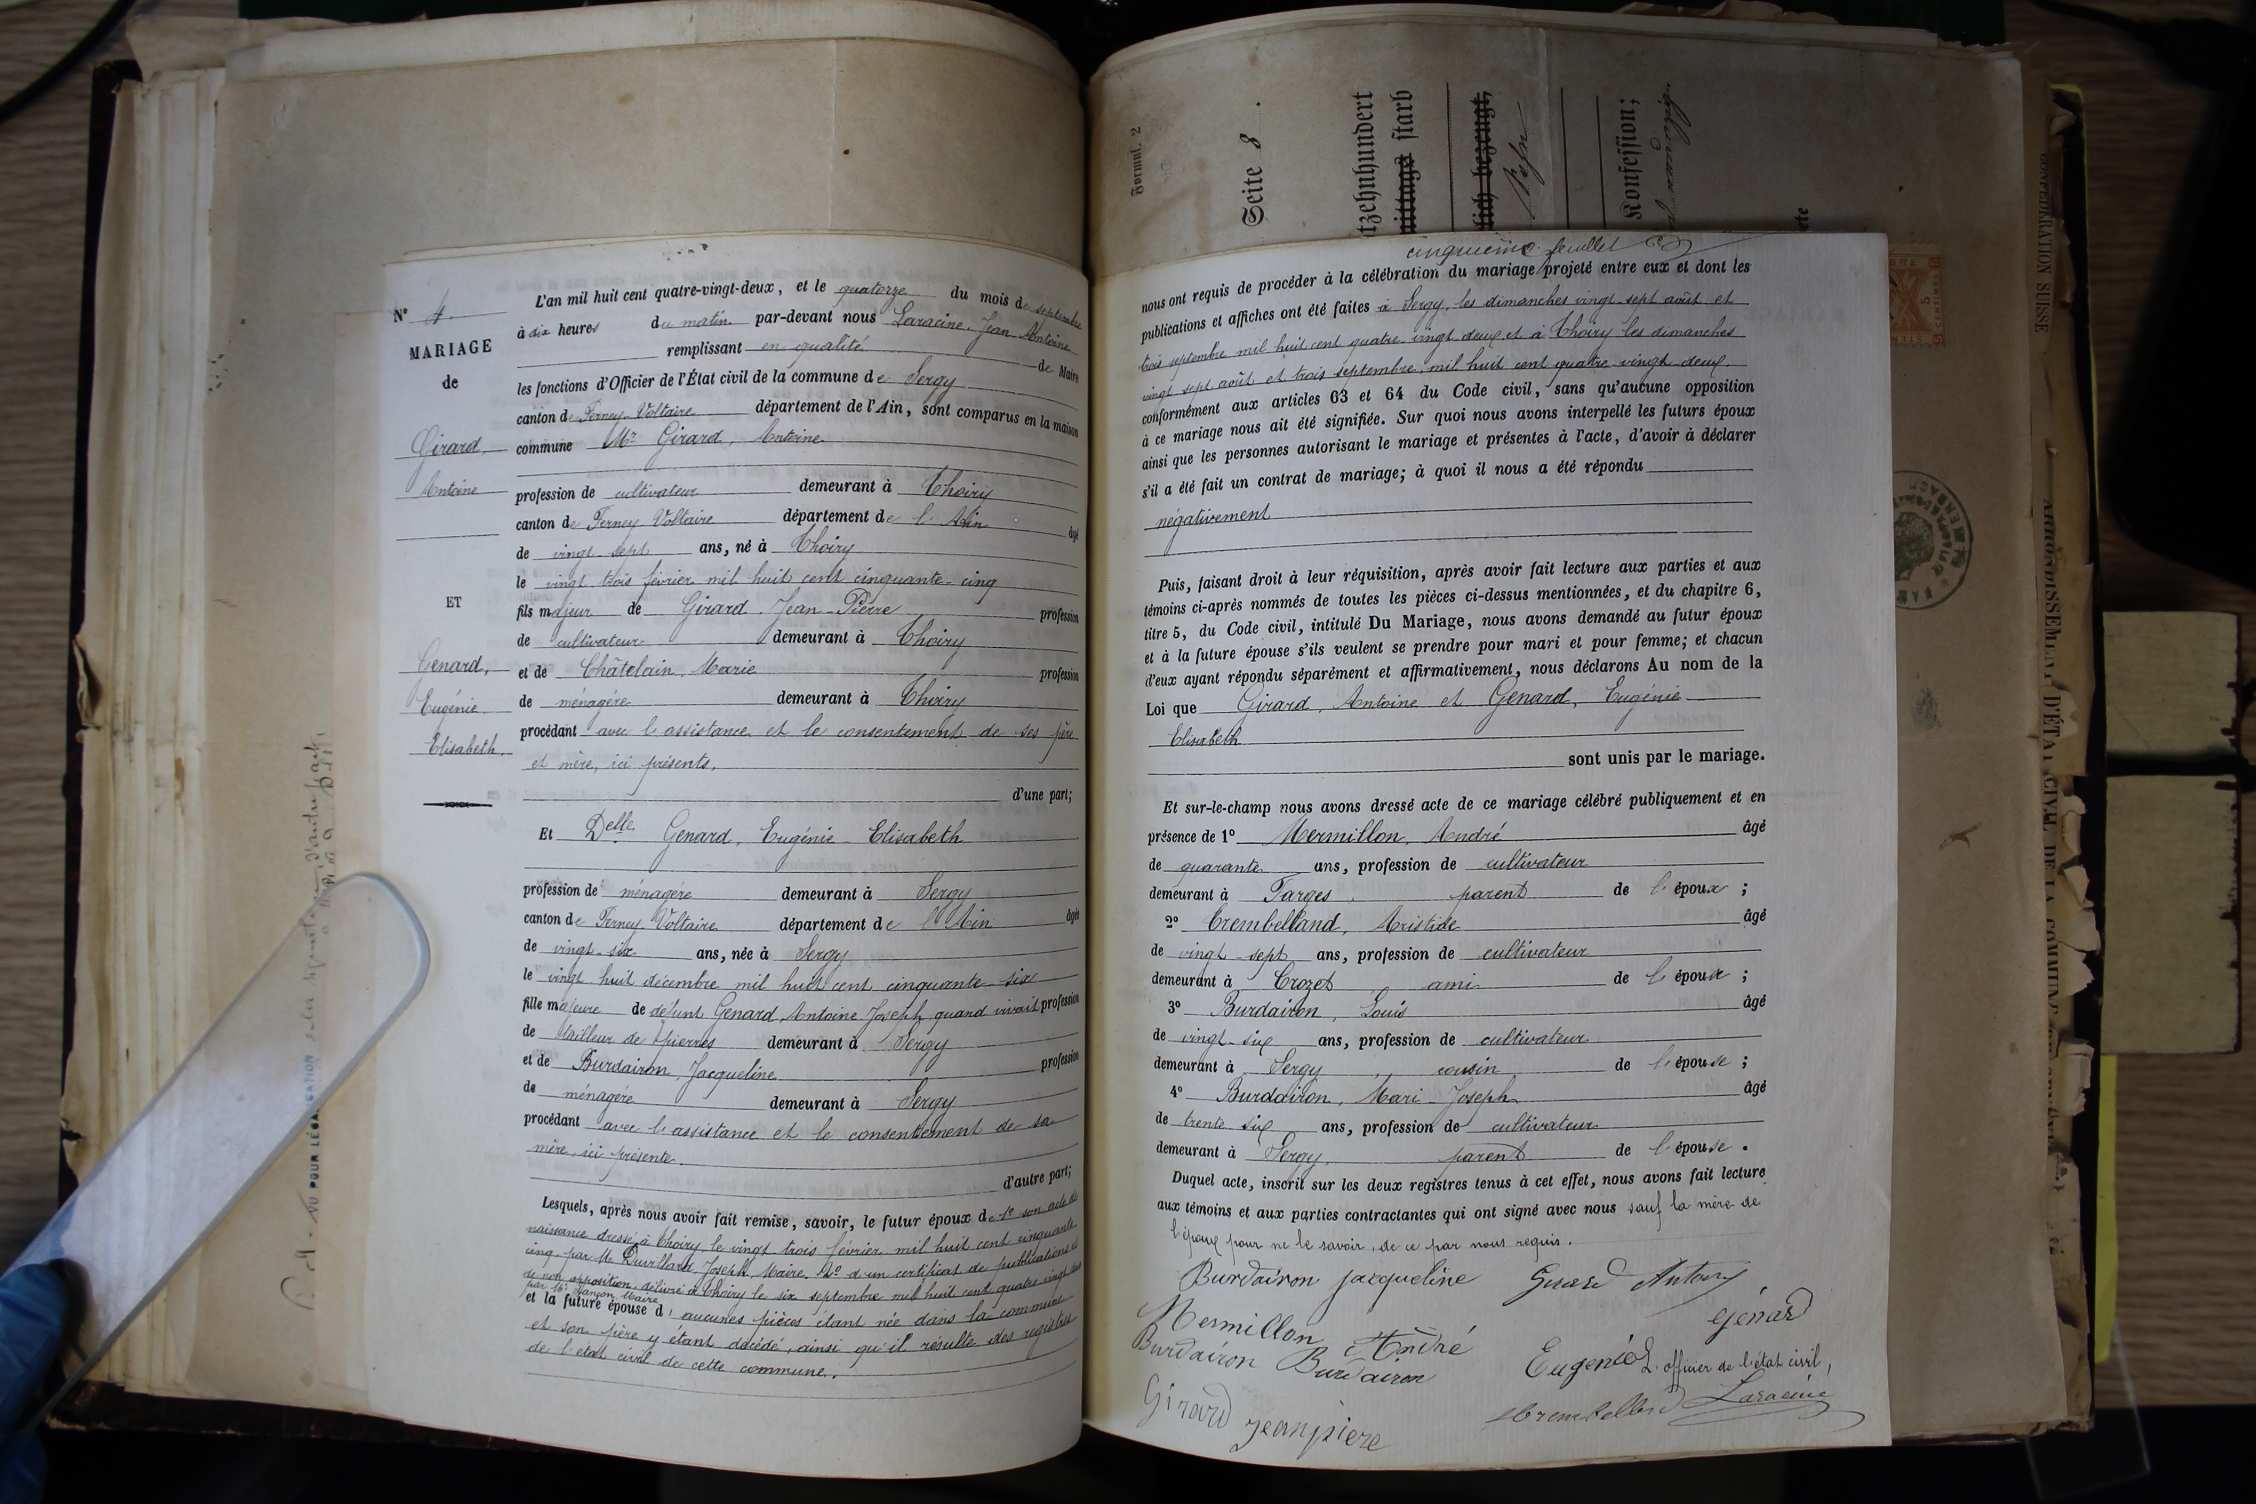 N° 4.
MARIAGE
de
Girard,
Antoine
ET
Genard,
Eugénie
Elisabeth.
L'an mil huit cent quatre-vingt-deux, et le quatorze du mois de septembre
à dix heures du matin par-devant nous Laracine, Jean Antoine
remplissant en qualité de Maire
les fonctions d'Officier de l'État civil de la commune de Sergy
canton de Ferney-Voltaire département de l'Ain, sont comparus en la maison
commune Mr Girard, Antoine
profession de cultivateur demeurant à Thoiry
canton de Ferney Voltaire département de l'Ain âgé
de vingt-sept ans, né à Thoiry
le vingt trois février mil huit cent cinquante-cinq
fils majeur de Girard Jean-Pierre profession
de cultivateur demeurant à Thoiry
et de Châtelain, Marie profession
de ménagère demeurant à Thoiry
procédant avec l'assistance et le consentement de ses père
et mère, ici présents,
d'une part;
Et Delle Genard, Eugénie-Elisabeth
profession de ménagère demeurant à Sergy
canton de Ferney Voltaire département de l'Ain âgée
de vingt-six ans, née à Sergy
le vingt huit décembre mil huit cent cinquante-six
fille majeure de défunt Genard, Antoine Joseph, quand vivait profession
de tailleur de pierres demeurant à Sergy
et de Burdairon, Jacqueline profession
de ménagère demeurant à Sergy
procédant avec l'assistance et le consentement de sa
mère, ici présente.
d'autre part;
Lesquels, après nous avoir fait remise, savoir, le futur époux de 1° son acte de
naissance dressé à Thoiry le vingt trois février mil huit cent cinquante
cinq par M. Duvillard, Joseph, Maire. 2° d'un certificat de publications et
de non opposition, délivré à Thoiry le six septembre mil huit cent quatre vingt deux
par Mr Maire
et la future épouse d'aucunes pièces étant née dans la commune
et son père y étant décédé, ainsi qu'il résulte des registres
de l'état civil de cette commune.
VU POUR LÉGALISATION
Formul. 2
Seite 8
tzehnhundert
mittags starb
lich bezeugt,
Konfession;
cinquième feuillet
nous ont requis de procéder à la célébration du mariage projeté entre eux et dont les
publications et affiches ont été faites à Sergy, les dimanches vingt-sept août et
trois septembre mil huit cent quatre vingt deux et à Thoiry les dimanches
vingt sept août et trois septembre, mil huit cent quatre vingt deux.
conformément aux articles 63 et 64 du Code civil, sans qu'aucune opposition
à ce mariage nous ait été signifiée. Sur quoi nous avons interpellé les futurs époux
ainsi que les personnes autorisant le mariage et présentes à l'acte, d'avoir à déclarer
s'il a été fait un contrat de mariage; à quoi il nous a été répondu
négativement
Puis, faisant droit à leur réquisition, après avoir fait lecture aux parties et aux
témoins ci-après nommés de toutes les pièces ci-dessus mentionnées, et du chapitre 6,
titre 5, du Code civil, intitulé Du Mariage, nous avons demandé au futur époux
et à la future épouse s'ils veulent se prendre pour mari et pour femme; et chacun
d'eux ayant répondu séparément et affirmativement, nous déclarons Au nom de la
Loi que Girard, Antoine et Genard, Eugénie
Elisabeth
sont unis par le mariage.
Et sur-le-champ nous avons dressé acte de ce mariage célébré publiquement et en
présence de 1° Mermillon, André âgé
de quarante ans, profession de cultivateur
demeurant à Farges, parent de l'époux;
2° Trembelland, Aristide âgé
de vingt-sept ans, profession de cultivateur
demeurant à Crozet, ami de l'époux;
3° Burdairon, Louis âgé
de vingt-six ans, profession de cultivateur
demeurant à Sergy, cousin de l'épouse;
4° Burdairon, Mari-Joseph âgé
de trente six ans, profession de cultivateur
demeurant à Sergy, parent de l'épouse.
Duquel acte, inscrit sur les deux registres tenus à cet effet, nous avons fait lecture
aux témoins et aux parties contractantes qui ont signé avec nous sauf la mère de
l'époux pour ne le savoir, de ce par nous requis.
Burdairon jacqueline Girard Antoine
Mermillon André génard
Burdairon Burdairon Eugénie L'officier de l'état civil,
Girard jeanpiere Trembelland Laracine
CONFÉDÉRATION SUISSE
ARRONDISSEMENT D'ÉTAT CIVIL DE LA COMMUNE